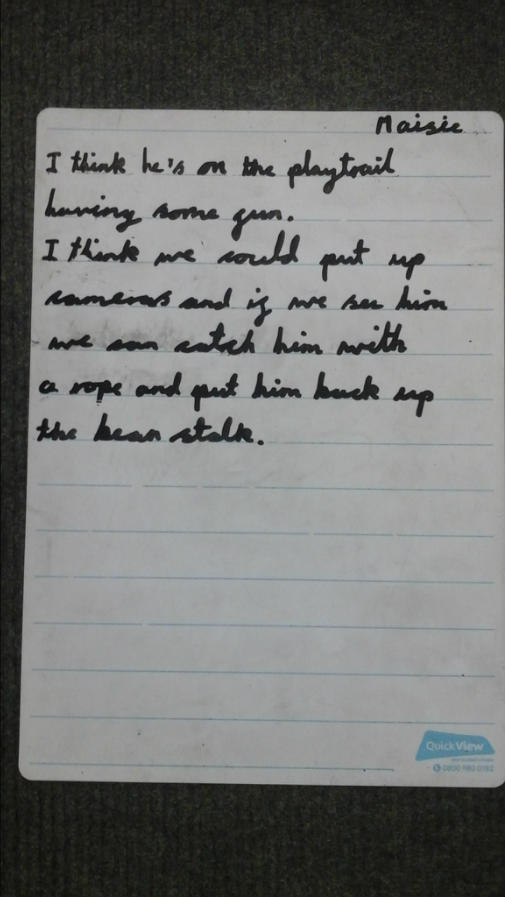 Maisie
I think he's on the playtrail
having some fun.
I think we could put up
cameras and if we see him
we can catch him with
a rope and put him back up
the bean stalk.
QuickView
0800 980 0192